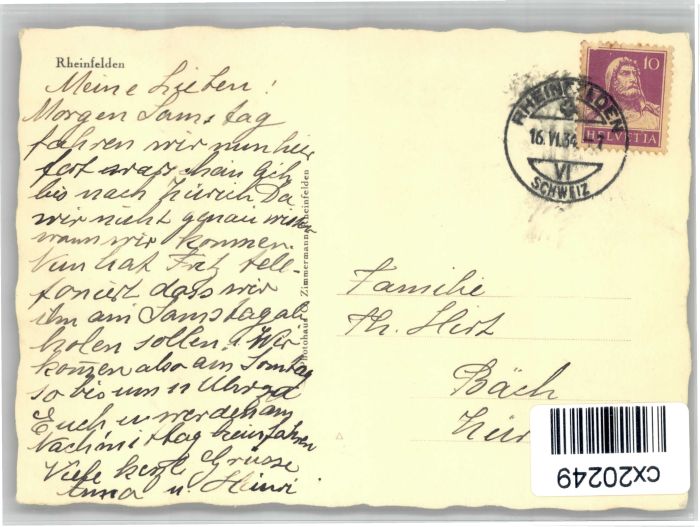 Rheinfelden
Meine Lieben!
Morgen Samstag
fahren wir nun hier
fort
bis nach Zürich Da
wir nicht genau wissen
wann wir kommen.
Nun hat Fritz tele-
foniert dass wir
ihn am Samstag ab
holen sollen. Wir
kommen also am Sonntag
so bis um 11 Uhr zu
Euch u. werden am
Nachmittag heimfahren
Viele herzl Grüsse
Anna u. Heinri
Photohaus C. Zimmermann, Rheinfelden
10
HELVETIA
RHEINFELDEN
16.VI.34.-7
VI
SCHWEIZ
Familie
Th. Hirt
Bäch
Zür
cx20249